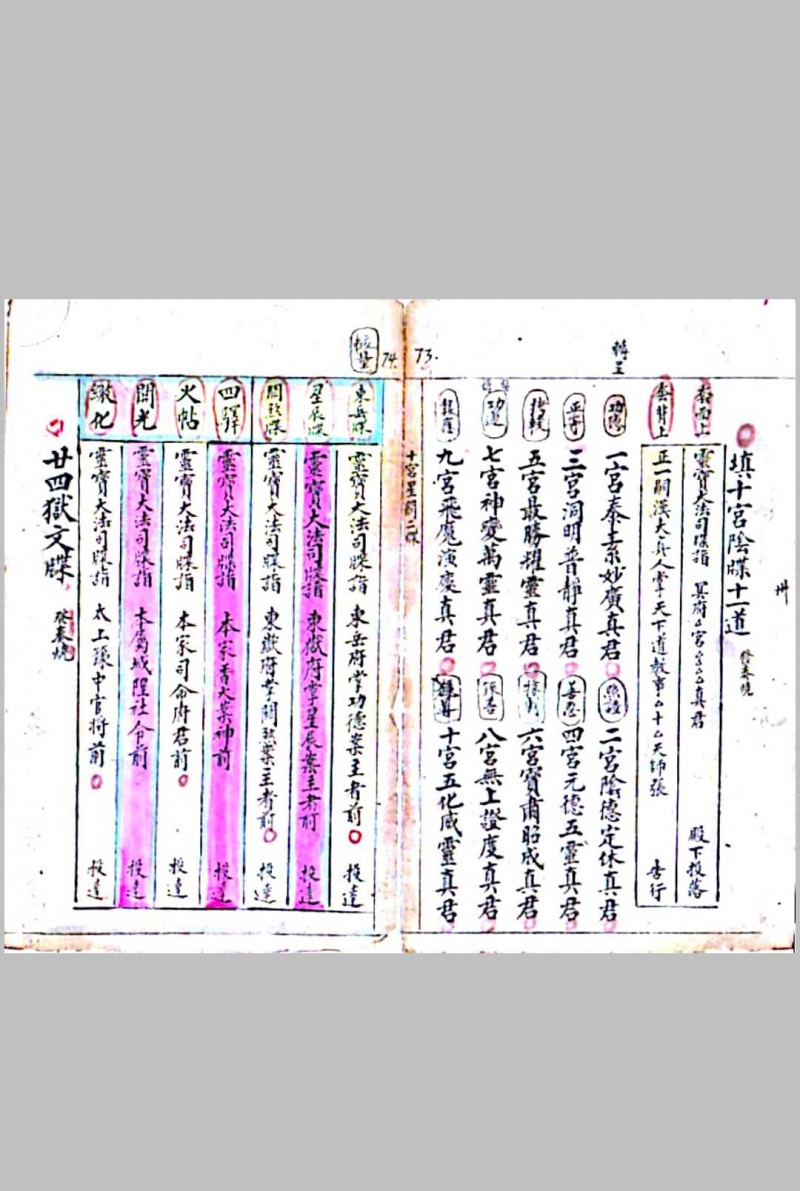 73.
填十宮陰牒十一道
靈寶大法司牒指 冥府
真君 殿下投落
正一嗣漢大真人掌天下道教事 十 天師張 告行
功德
一宮泰素妙廣真君
二宮陰德定休真君
三宮洞明普靜真君
善惡
四宮元德五靈真君
五宮最勝耀靈真君
六宮寶肅昭成真君
七宮神變萬靈真君
八宮無上證度真君
九宮飛魔演慶真君
十宮五化威靈真君
74.
東岳牒
靈寶大法司牒指 東岳府掌功德案主者前 投達
星辰牒
靈寶大法司牒指 東嶽府掌星辰案主者前 投達
靈寶大法司牒指 東嶽府掌 案主者前 投達
四
靈寶大法司牒指 本家香火案神前 投達
火帖
靈寶大法司牒指 本家司命府君前 投達
開光
靈寶大法司牒指 本屬城隍社令前 投達
繳化
靈寶大法司牒指 太上 中官將前 投達
廿四獄文牒